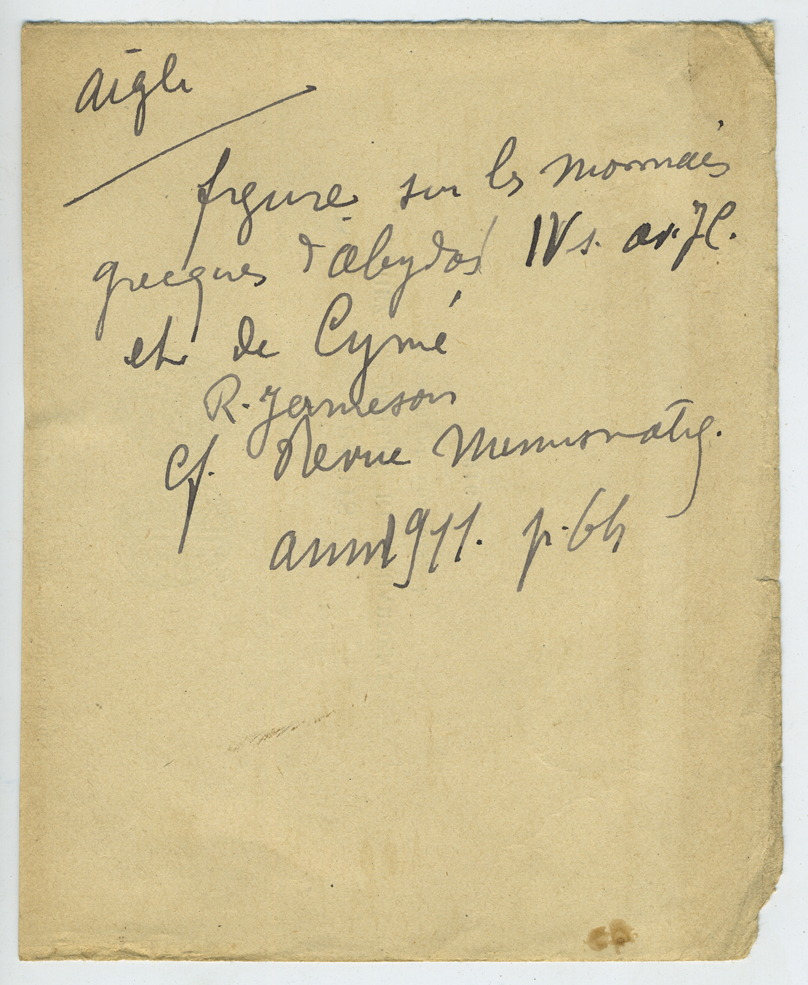 Aigle
figure sur les monnaies
grecques d'Abydos IV s. av. JC.
et de Cymé
R. Jameson
Cf. Revue Numismatiq.
ann 1911. p.